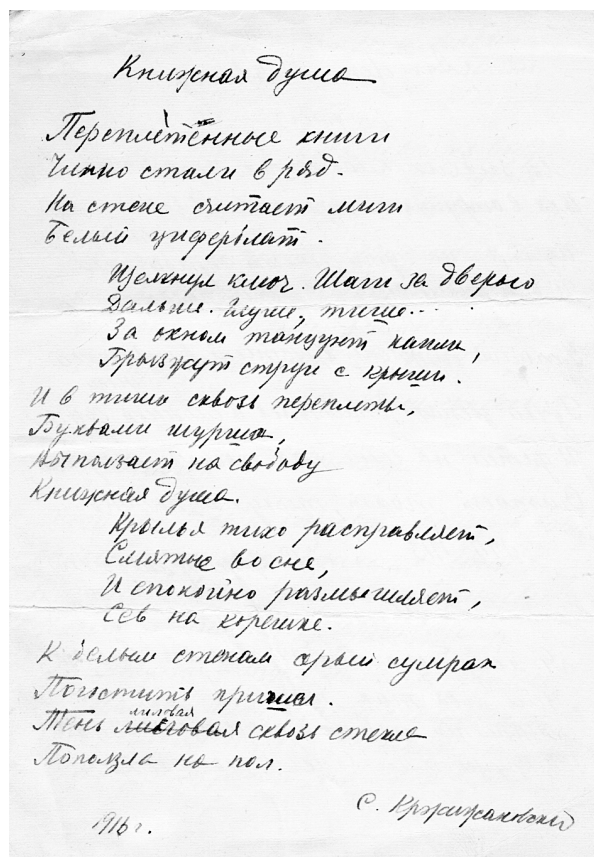 Книжная душа
Переплетённые книги
Чинно стали в ряд.
На стене считает миги
Белый циферблат.
Щелкнул ключ. Шаги за дверью
Дальше. Глуше, тише...
За окном танцуют капли,
Брызжут струи с крыши.
И в тиши сквозь переплеты,
Буквами шурша,
Выползает на свободу
Книжная душа.
Крылья тихо расправляет,
Смятые во сне,
И спокойно размышляет,
Сев на корешке.
К белым стенам серый сумрак
Погостить пришел.
лиловая
Тень сквозь стекла
Поползла на пол.
С. Кржижановский
1916 г.